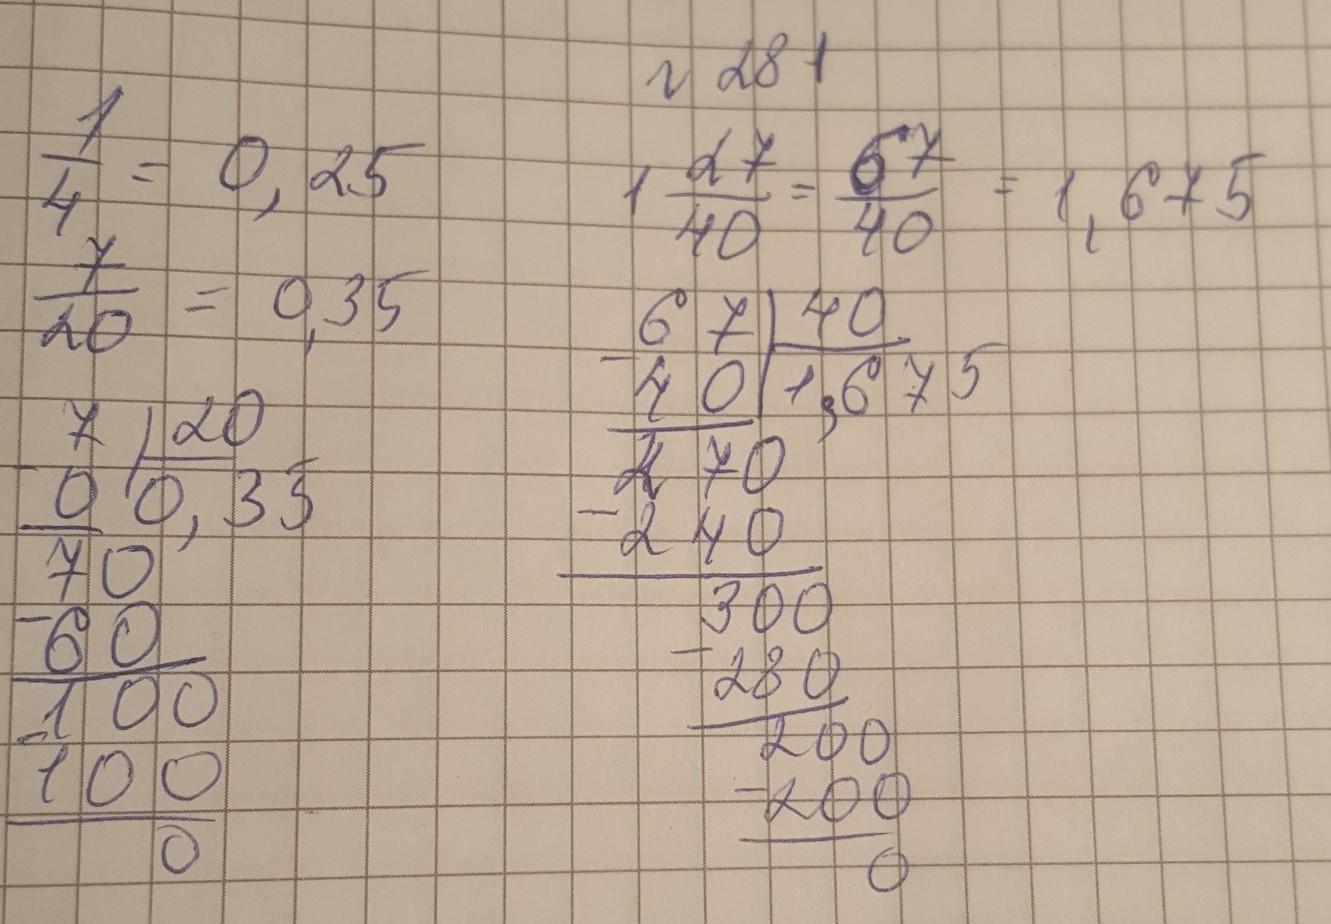 n 281
1/4 = 0,25
7/20 = 0,35
7 | 20
- 0 0,35
70
- 60
100
- 100
0
1 27/40 = 67/40 = 1,675
67 | 40
- 40 | 1,675
270
- 240
300
- 280
200
- 200
0